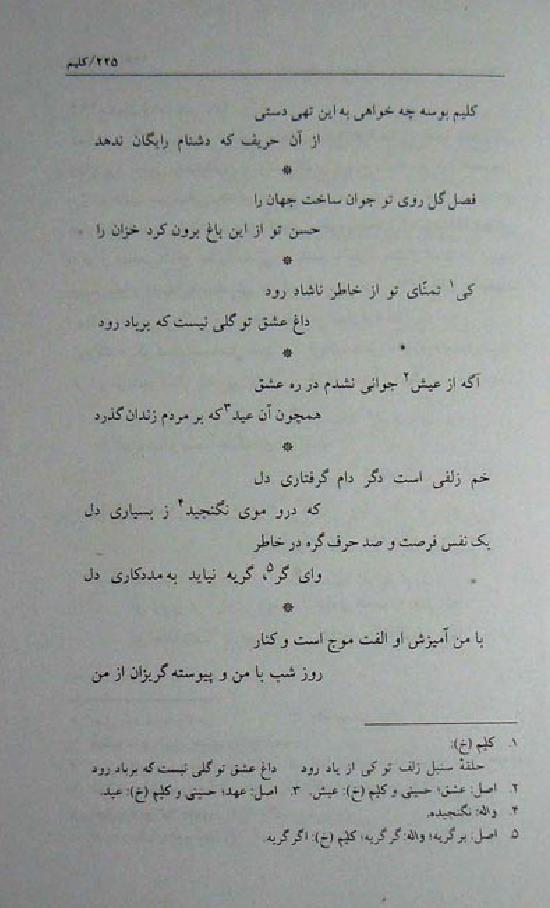 ۲۲۵/کلیم
کلیم بوسه چه خواهی به این تهی دستی
از آن حریف که دشنام رایگان ندهد
*
فصل گل روی تو جوان ساخت جهان را
حسن تو از این باغ برون کرد خزان را
*
کی۱ تمنّای تو از خاطر ناشاد رود
داغ عشق تو گلی نیست که برباد رود
*
آگه از عیش۲ جوانی نشدم در ره عشق
همچون آن عید۳ که بر مردم زندان گذرد
*
خم زلفی است دگر دام گرفتاری دل
که درو موی نگنجید۴ ز بسیاری دل
یک نفس فرصت و صد حرف گره در خاطر
وای گر۵، گریه نیاید به مددکاری دل
*
با من آمیزش او الفت موج است و کنار
روز شب با من و پیوسته گریزان از من
۱. کلیم (خ):
حلقهٔ سنبل زلف تو کی از یاد رود داغ عشق تو گلی نیست که برباد رود
۲. اصل: عشق؛ حسینی و کلیم (خ): عیش. ۳. اصل: عهد؛ حسینی و کلیم (خ): عید.
۴. واله: نگنجیده.
۵. اصل: بر گریه؛ واله: گر گریه؛ کلیم (خ): اگر گریه.